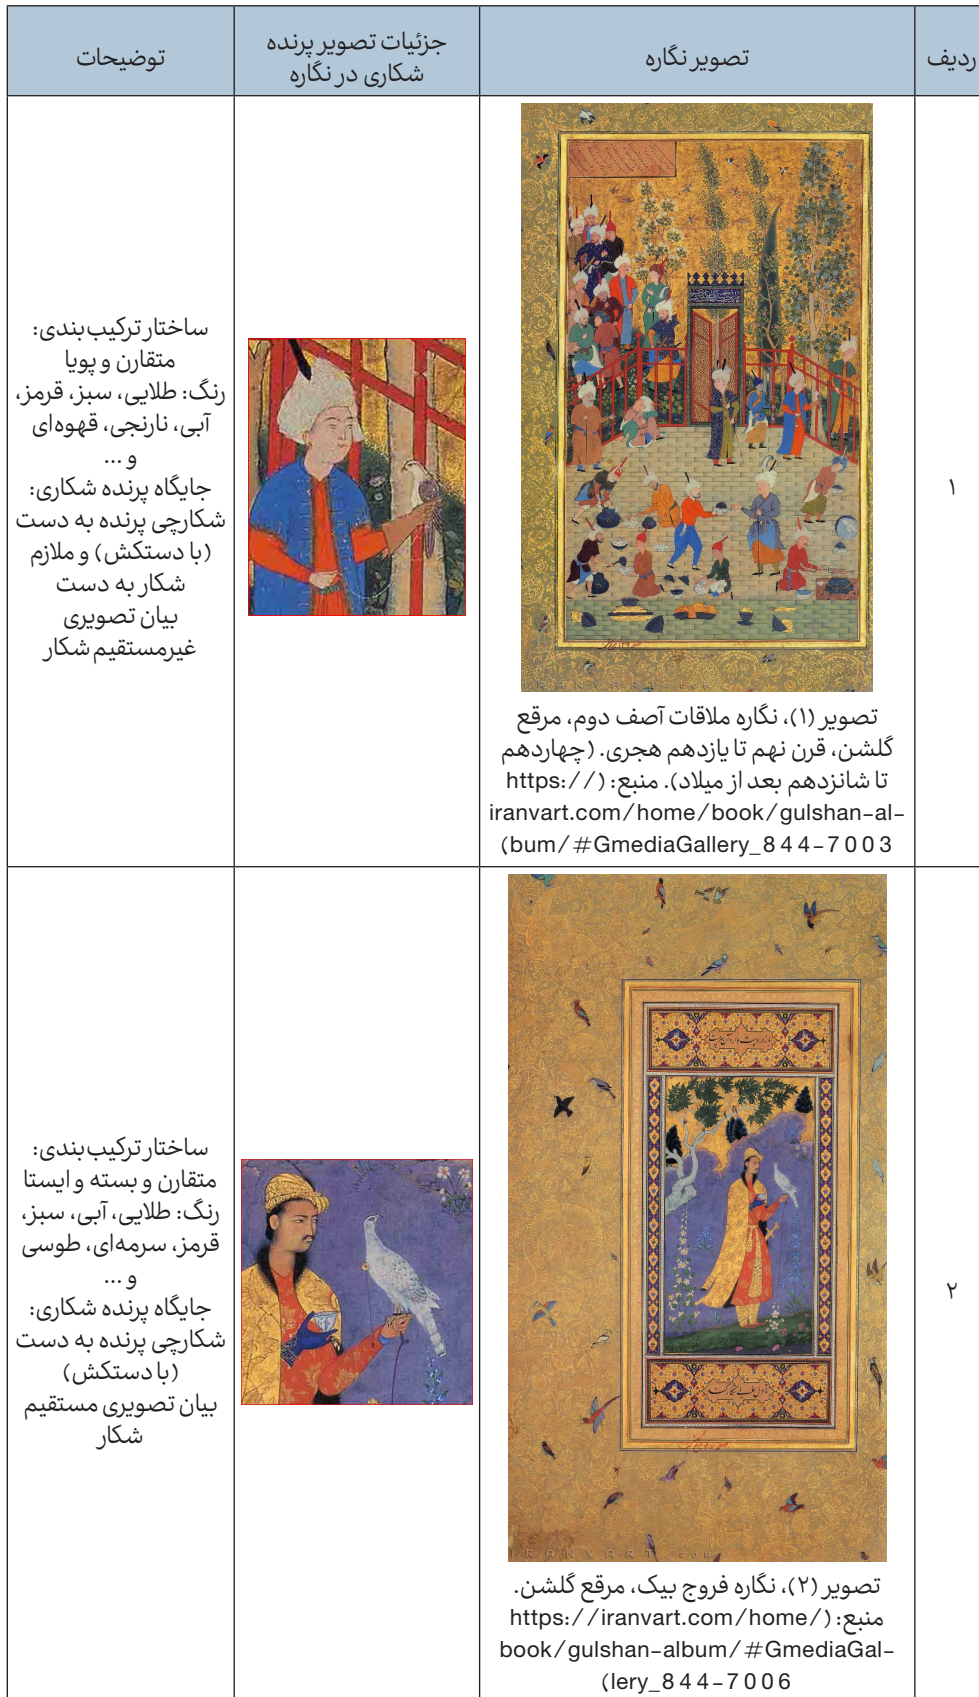 ردیف
تصویر نگاره
جزئیات تصویر پرنده
شکاری در نگاره
توضیحات
۱
تصویر (۱)، نگاره ملاقات آصف دوم، مرقع
گلشن، قرن نهم تا یازدهم هجری. (چهاردهم
تا شانزدهم بعد از میلاد). منبع: (https://
iranvart.com/home/book/gulshan-al-
bum/#GmediaGallery_844-7003)
ساختار ترکیب‌بندی:
متقارن و پویا
رنگ: طلایی، سبز، قرمز،
آبی، نارنجی، قهوه‌ای
و ...
جایگاه پرنده شکاری:
شکارچی پرنده به دست
(با دستکش) و ملازم
شکار به دست
بیان تصویری
غیرمستقیم شکار
۲
IRANVART.com
تصویر (۲)، نگاره فروج بیک، مرقع گلشن.
منبع: (https://iranvart.com/home/
book/gulshan-album/#GmediaGal-
lery_844-7006)
ساختار ترکیب‌بندی:
متقارن و بسته و ایستا
رنگ: طلایی، آبی، سبز،
قرمز، سرمه‌ای، طوسی
و ...
جایگاه پرنده شکاری:
شکارچی پرنده به دست
(با دستکش)
بیان تصویری مستقیم
شکار